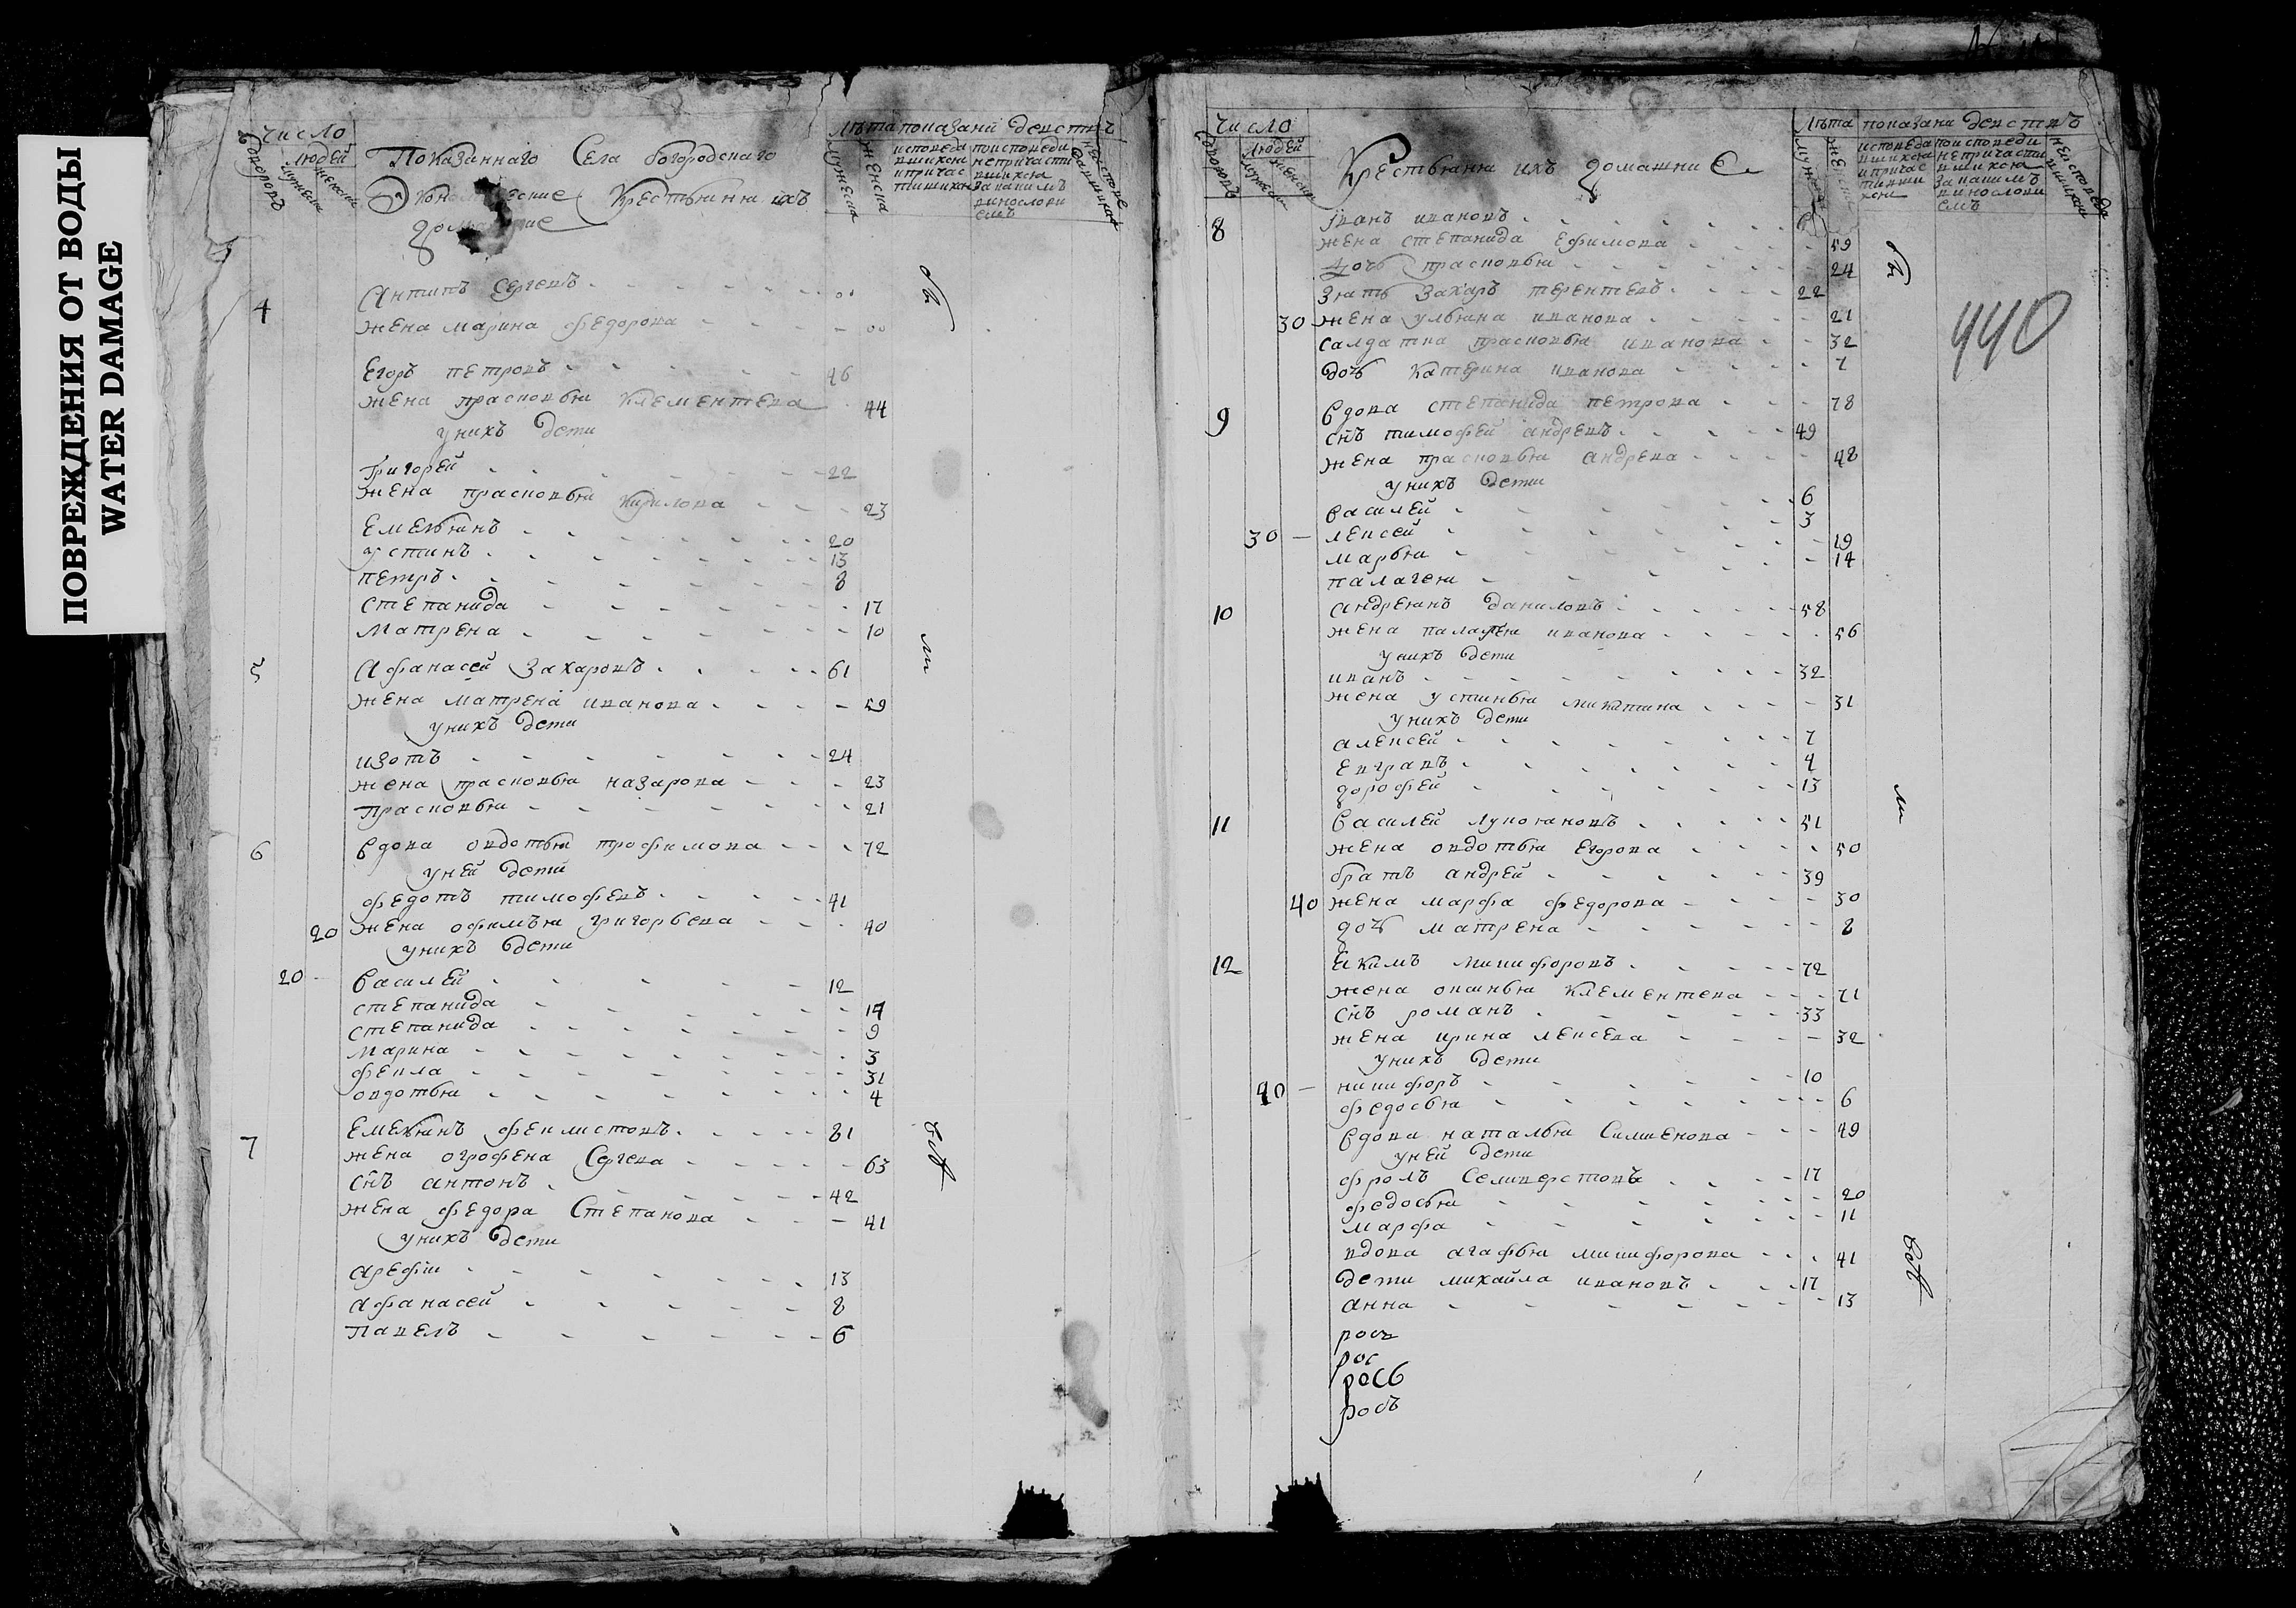 ПОВРЕЖДЕНИЯ ОТ ВОДЫ
WATER DAMAGE
Число
людей
дворовъ
мужеска
женска
Показаннаго Села богородскаго
Экономические Крестьяня ихъ
домашние
Лѣта показани действ
мужеска
женска
4
Антипъ Сергевъ
жена марина федорова
Егоръ петровъ 46
жена прасковья Клементева 44
у нихъ дети
Григорей 22
жена прасковья Кирилова 23
Емельянъ 20
устинъ 13
петръ 8
степанида 17
матрена 10
5 Афанасей Захаровъ 61
жена матрена иванова 59
у нихъ дети
изотъ 24
жена прасковья назарова 23
прасковья 21
6 Вдова овдотья трофимова 72
у ней дети
федотъ тимофевъ 41
20 жена офимъя григорьева 40
у нихъ дети
20 Василей 12
степанида 14
степанида 9
марина 3
фекла 31
овдотья 4
7 Емельянъ феклистовъ 81
жена огрофена Сергева 63
снъ антонъ 42
жена федора Степанова 41
у нихъ дети
арефiи 13
афанасей 8
павелъ 6
Число
людей
дворовъ
Крестьяня ихъ домашние
Лѣта показани действъ
440
8 Иванъ ивановъ
жена степанида ефимова 59
дочь прасковья 24
Зять Захаръ терентевъ 22
30 жена ульяна иванова 21
салдатка прасковья иванова 32
дочь Катерина иванова 7
9 Вдова степанида петрова 78
снъ тимофей андревъ 49
жена прасковья андрева 48
у нихъ дети
Василей 6
30 лексей 3
марья 19
палагея 14
10 андреянъ даниловъ 58
жена палагея иванова 56
у нихъ дети
иванъ 32
жена устинья микитина 31
у нихъ дети
алексей 7
евгравъ 4
дорофей 13
11 Василей лукояновъ 51
жена овдотья Егорова 50
братъ андрей 39
40 жена марфа федорова 30
дочь матрена 8
12 Екимъ никифоровъ 72
жена оксинья Клементева 71
снъ романъ 33
жена ирина лексева 32
у нихъ дети
40 никифоръ 10
федосья 6
Вдова наталья Силиенова 49
у ней дети
фролъ Селиверстовъ 17
федосья 20
марфа 11
вдова агафья никифорова 41
дети михайла ивановъ 17
анна 13
рос